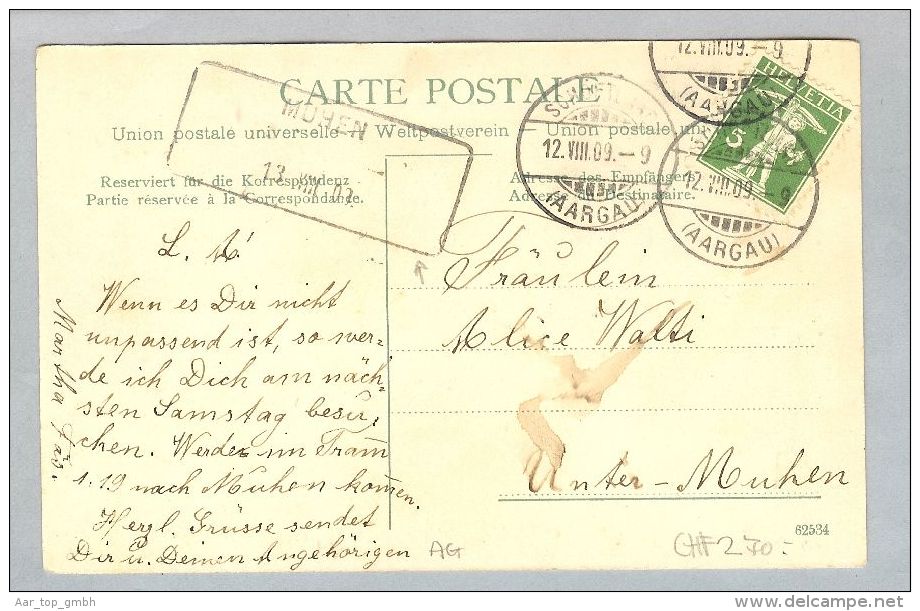 CARTE POSTALE
Union postale universelle – Weltpostverein – Union postale
Reserviert für die Korrespondenz
Partie réservée à la Correspondance.
Adresse des Empfängers.
Adresse du Destinataire.
12.VIII.09.–9
(AARGAU)
12.VIII.09.–9
(AARGAU)
12.VIII.09.–9
(AARGAU)
HELVETIA
5
MUHEN
13. VIII. 09
L. A!
Wenn es Dir nicht
unpassend ist, so wer-
de ich Dich am näch-
sten Samstag besu-
chen. Werde im Tram
1.19 nach Muhen kom̄en.
Herzl. Grüsse sendet
Dir u. Deinen Angehörigen
Martha
Fräulein
Alice Walti
Unter-Muhen
62534
AG
CHF 2.70:-
Aar_top_gmbh
delcampe.net